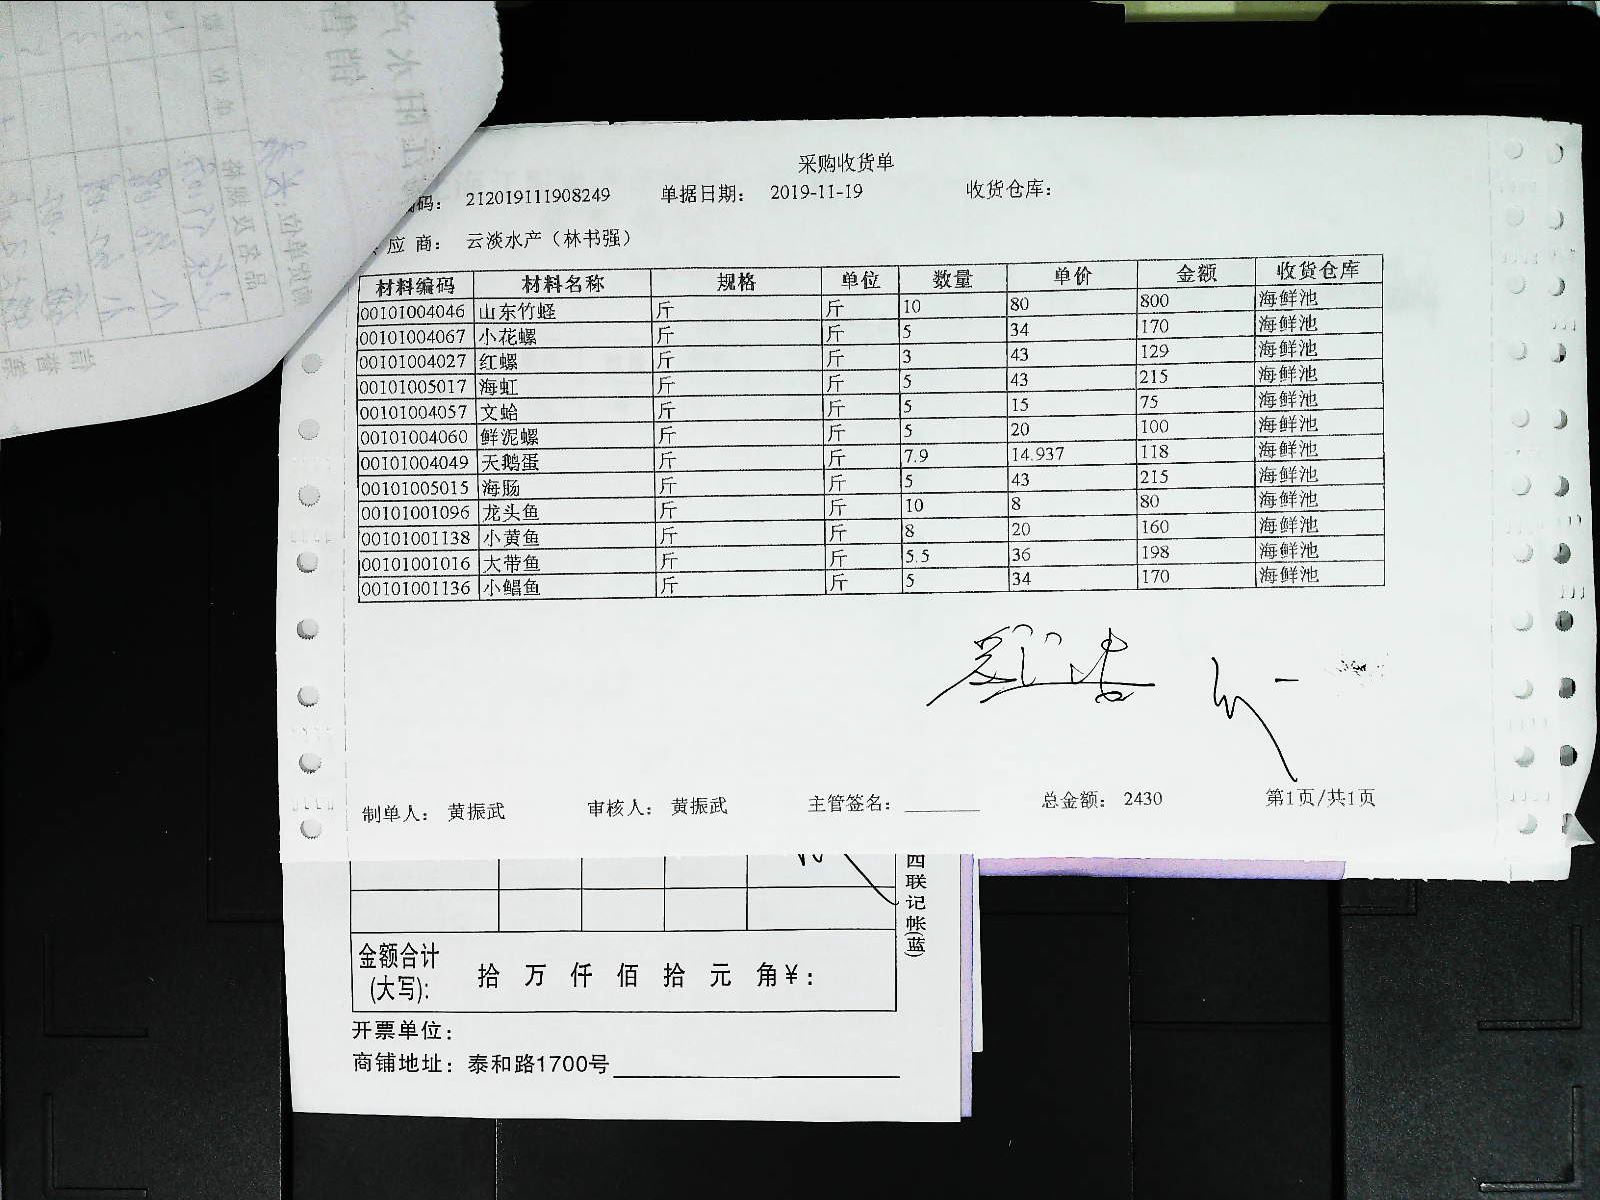 采购收货单
编码： 212019111908249 单据日期： 2019-11-19 收货仓库：
应商： 云淡水产（林书强）
材料编码 材料名称 规格 单位 数量 单价 金额 收货仓库
00101004046 山东竹蛏 斤 斤 10 80 800 海鲜池
00101004067 小花螺 斤 斤 5 34 170 海鲜池
00101004027 红螺 斤 斤 3 43 129 海鲜池
00101005017 海虹 斤 斤 5 43 215 海鲜池
00101004057 文蛤 斤 斤 5 15 75 海鲜池
00101004060 鲜泥螺 斤 斤 5 20 100 海鲜池
00101004049 天鹅蛋 斤 斤 7.9 14.937 118 海鲜池
00101005015 海肠 斤 斤 5 43 215 海鲜池
00101001096 龙头鱼 斤 斤 10 8 80 海鲜池
00101001138 小黄鱼 斤 斤 8 20 160 海鲜池
00101001016 大带鱼 斤 斤 5.5 36 198 海鲜池
00101001136 小鲳鱼 斤 斤 5 34 170 海鲜池
制单人： 黄振武 审核人： 黄振武 主管签名： 总金额： 2430 第1页/共1页
四联记帐(蓝)
金额合计
(大写): 拾 万 仟 佰 拾 元 角 ¥：
开票单位：
商铺地址：泰和路1700号